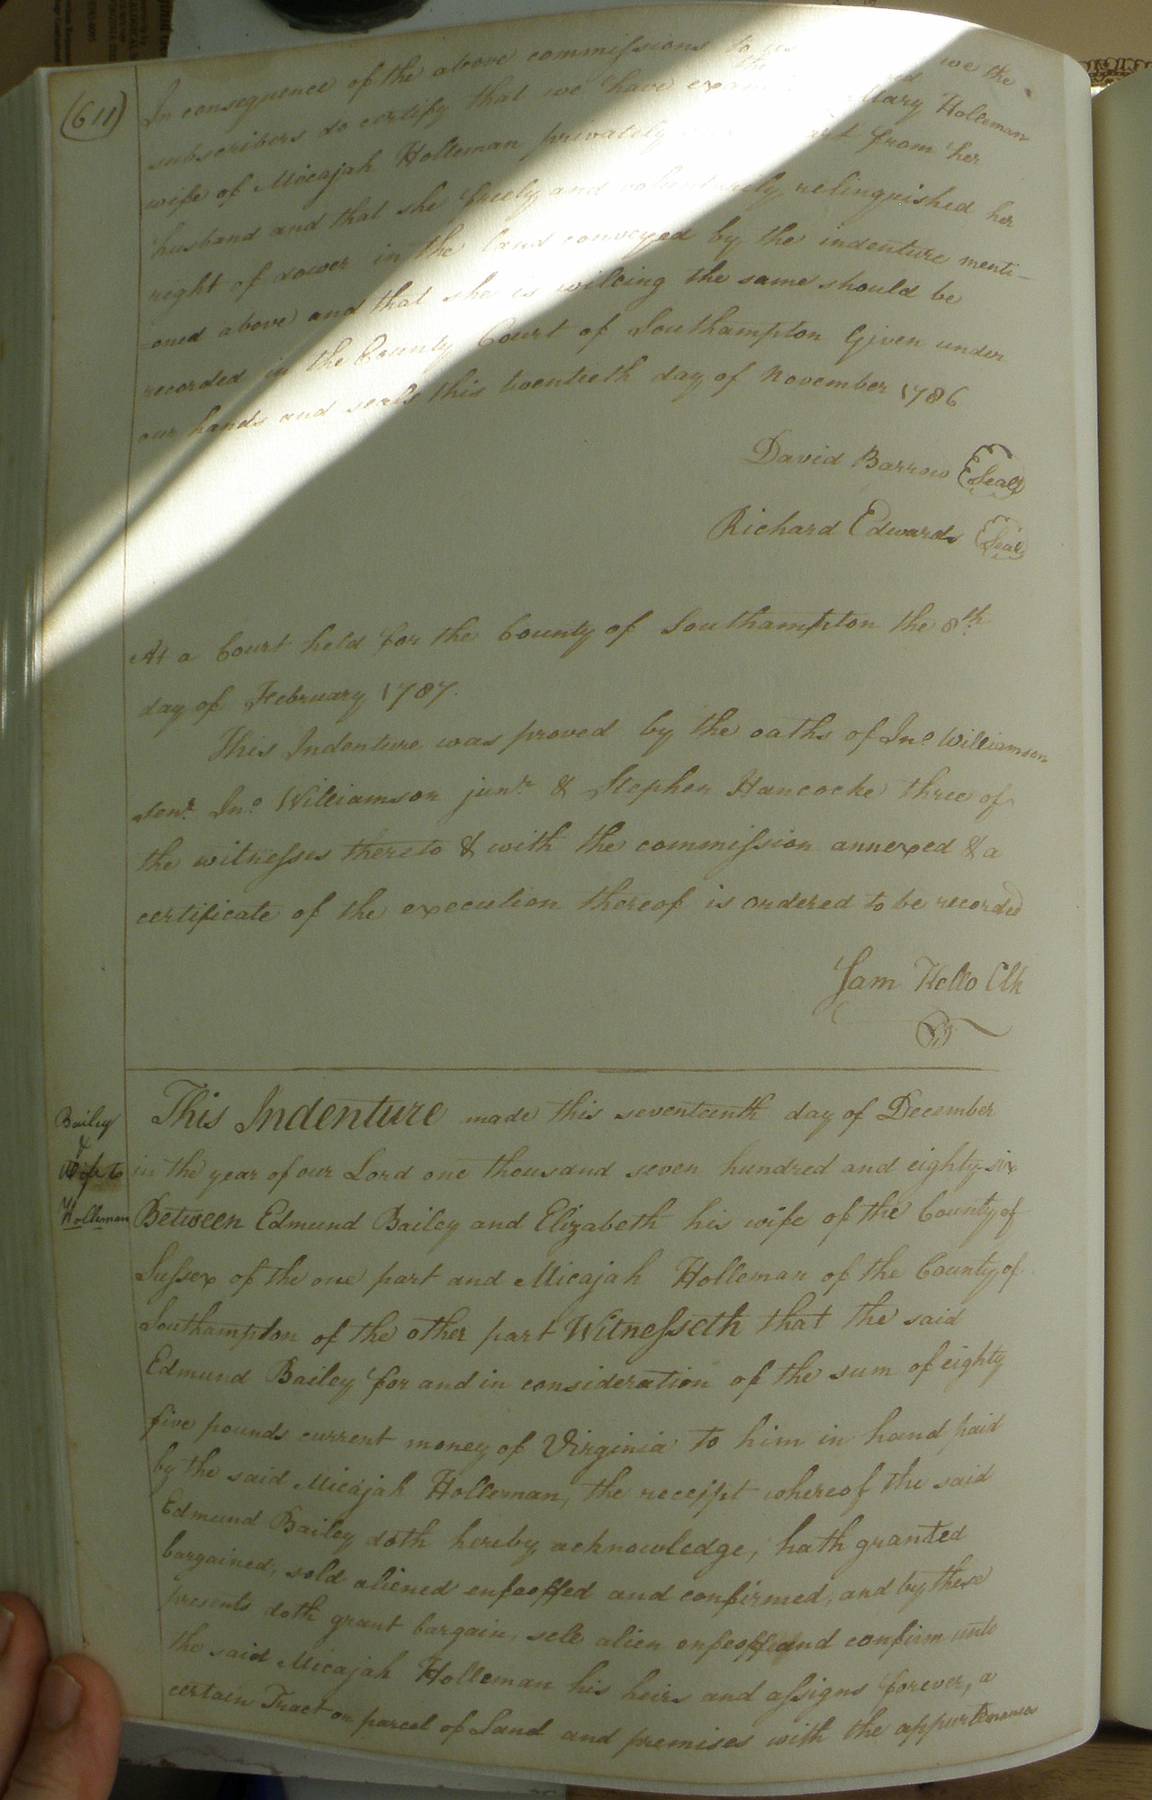 (611)
In consequence of the above commissions to us we the
subscribers do certify that we have Mary Holleman
wife of Micajah Holleman privately from her
husband and that she freely and voluntarily relinquished her
right of dower in the land conveyed by the indenture menti-
-oned above and that she is willing the same should be
recorded in the County Court of Southampton Given under
our hands and seals this twentieth day of November 1786
David Barrow Seal
Richard Edwards Seal
At a Court held for the County of Southampton the 8th
day of February 1787.
This Indenture was proved by the oaths of Jno Williamson
senr. Jno. Williamson junr. & Stephen Hancocke three of
the witnesses thereto & with the commission annexed & a
certificate of the execution thereof is ordered to be recorded
Sam Kello Clk
Bailey
&
Wife to
Holleman
This Indenture made this seventeenth day of December
in the year of our Lord one thousand seven hundred and eighty six
Between Edmund Bailey and Elizabeth his wife of the County of
Sussex of the one part and Micajah Holleman of the County of
Southampton of the other part Witnesseth that the said
Edmund Bailey for and in consideration of the sum of eighty
five pounds current money of Virginia to him in hand paid
by the said Micajah Holleman, the receipt whereof the said
Edmund Bailey doth hereby acknowledge, hath granted
bargained, sold aliened enfeoffed and confirmed, and by these
presents doth grant bargain, sell alien enfeoff and confirm unto
the said Micajah Holleman his heirs and assigns forever, a
certain Tract or parcel of Land and premises with the appurtenances